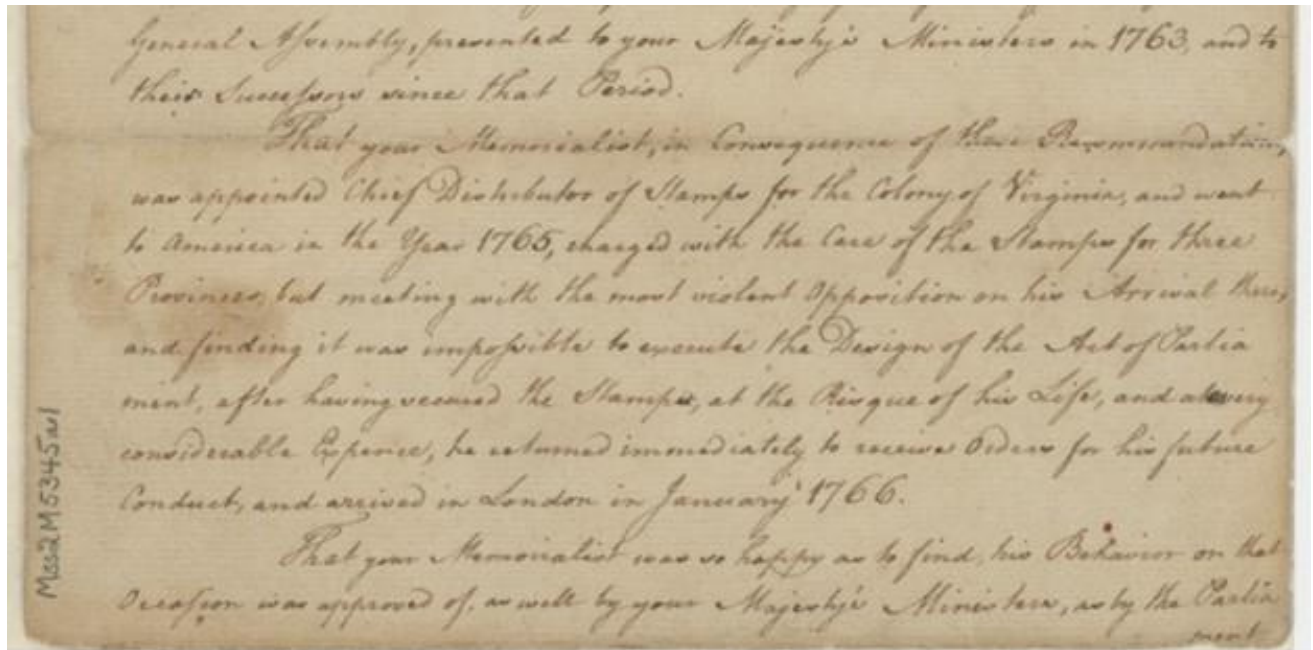 General Assembly, presented to your Majesty's Ministers in 1763, and to
their Successors since that Period.
That your Memorialist, in Consequence of these Recommendations,
was appointed Chief Distributor of Stamps for the Colony of Virginia, and went
to America in the Year 1765, charged with the Care of the Stamps for three
Provinces, but meeting with the most violent Opposition on his Arrival there,
and finding it was impossible to execute the Design of the Act of Parlia
ment, after having secured the Stamps, at the Risque of his Life, and at very
considerable Expence, he returned immediately to receive Orders for his future
Conduct, and arrived in London in January 1766.
That your Memorialist was so happy as to find, his Behavior on that
Occasion was approved of, as well by your Majesty's Ministers, as by the Parlia
ment
Mss2M5345a1